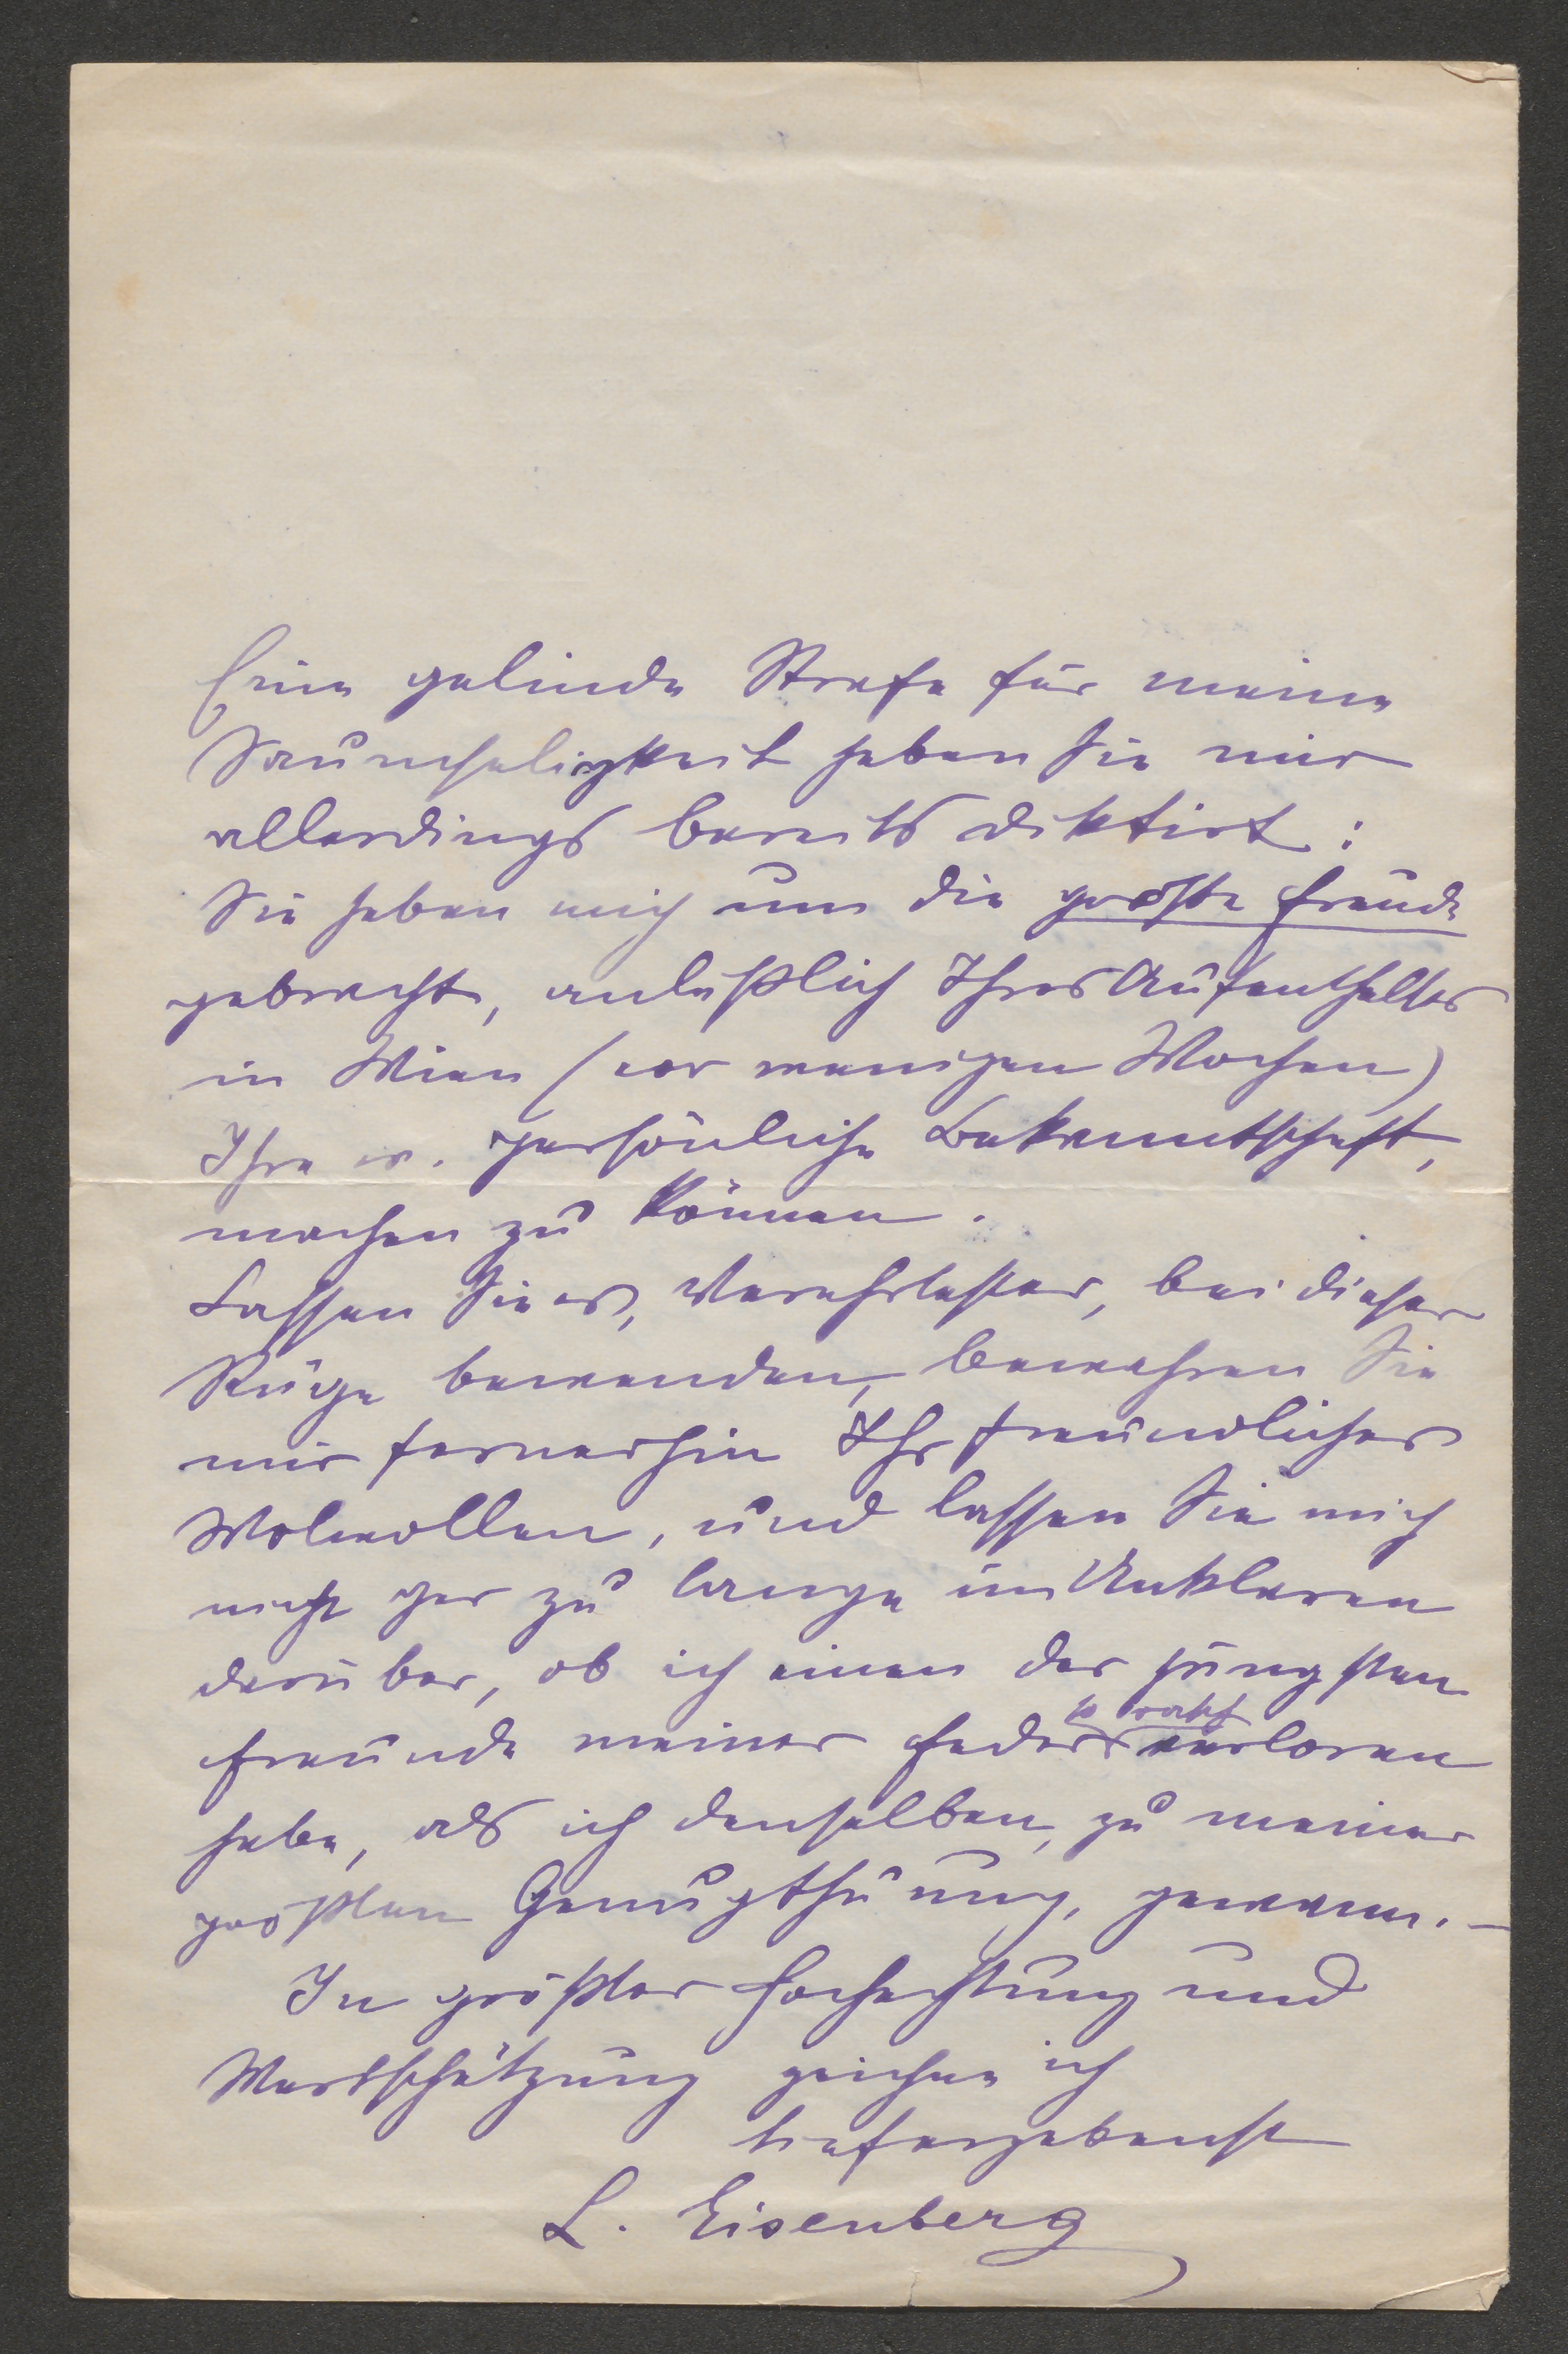 Eine gelinde Strafe für meine
Saumseligkeit haben Sie mir
allerdings bereits diktirt:
Sie haben mich um die größte Freude
gebracht, anläßlich Ihres Aufenthaltes
in Wien (vor wenigen Wochen)
Ihre w. persönliche Bekanntschaft,
machen zu können.
Lassen Sie es, Verehrtester, bei dieser
Rüge bewenden, bewahren Sie
mir fernerhin Ihr freundliches
Wolwollen, und lassen Sie mich
nicht gar zu lange im Unklaren
darüber, ob ich einen der jüngsten
so rasch
Freunde meiner Feder verloren
habe, als ich denselben, zu meiner
größten Genugthuung, gewann. –
In größter Hochachtung und
Wertschätzung zeichne ich
tiefergebenst
L. Eisenberg